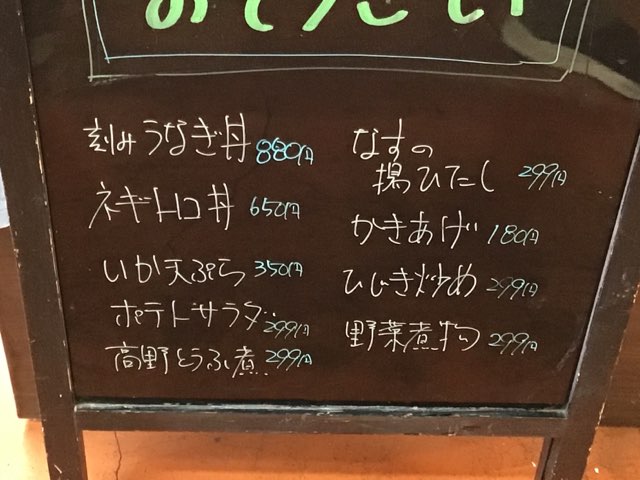 刻みうなぎ丼 880円
ネギトロ丼 650円
いか天ぷら 350円
ポテトサラダ 299円
高野とうふ煮 299円
なすの
揚ひたし 299円
かきあげ 180円
ひじき炒め 299円
野菜煮物 299円